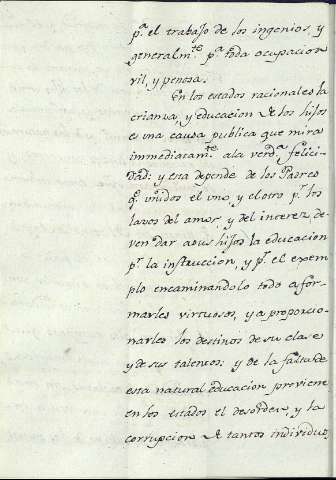 p.ª el trabajo de los ingenios, y
generalm.te p.ª toda ocupacion
vil, y penosa.
En los estados racionales la
crianza, y educacion de los hijos
es una causa publica que mira
immediatam.te ala verd.ª felici-
dad: y esta depende de los Padres
q.e unidos el uno, y el otro p.r los
lazos del amor, y del interez, de-
ven dar asus hijos la educacion
p.r la instruccion, y p.r el exem-
plo encaminandolo todo afor-
marles virtuosos, y a proporcio-
narles los destinos de su clase
y de sus talentos: y de la falta de
esta natural educacion proviene
en los estados el desorden, y la
corrupcion de tantos individuos